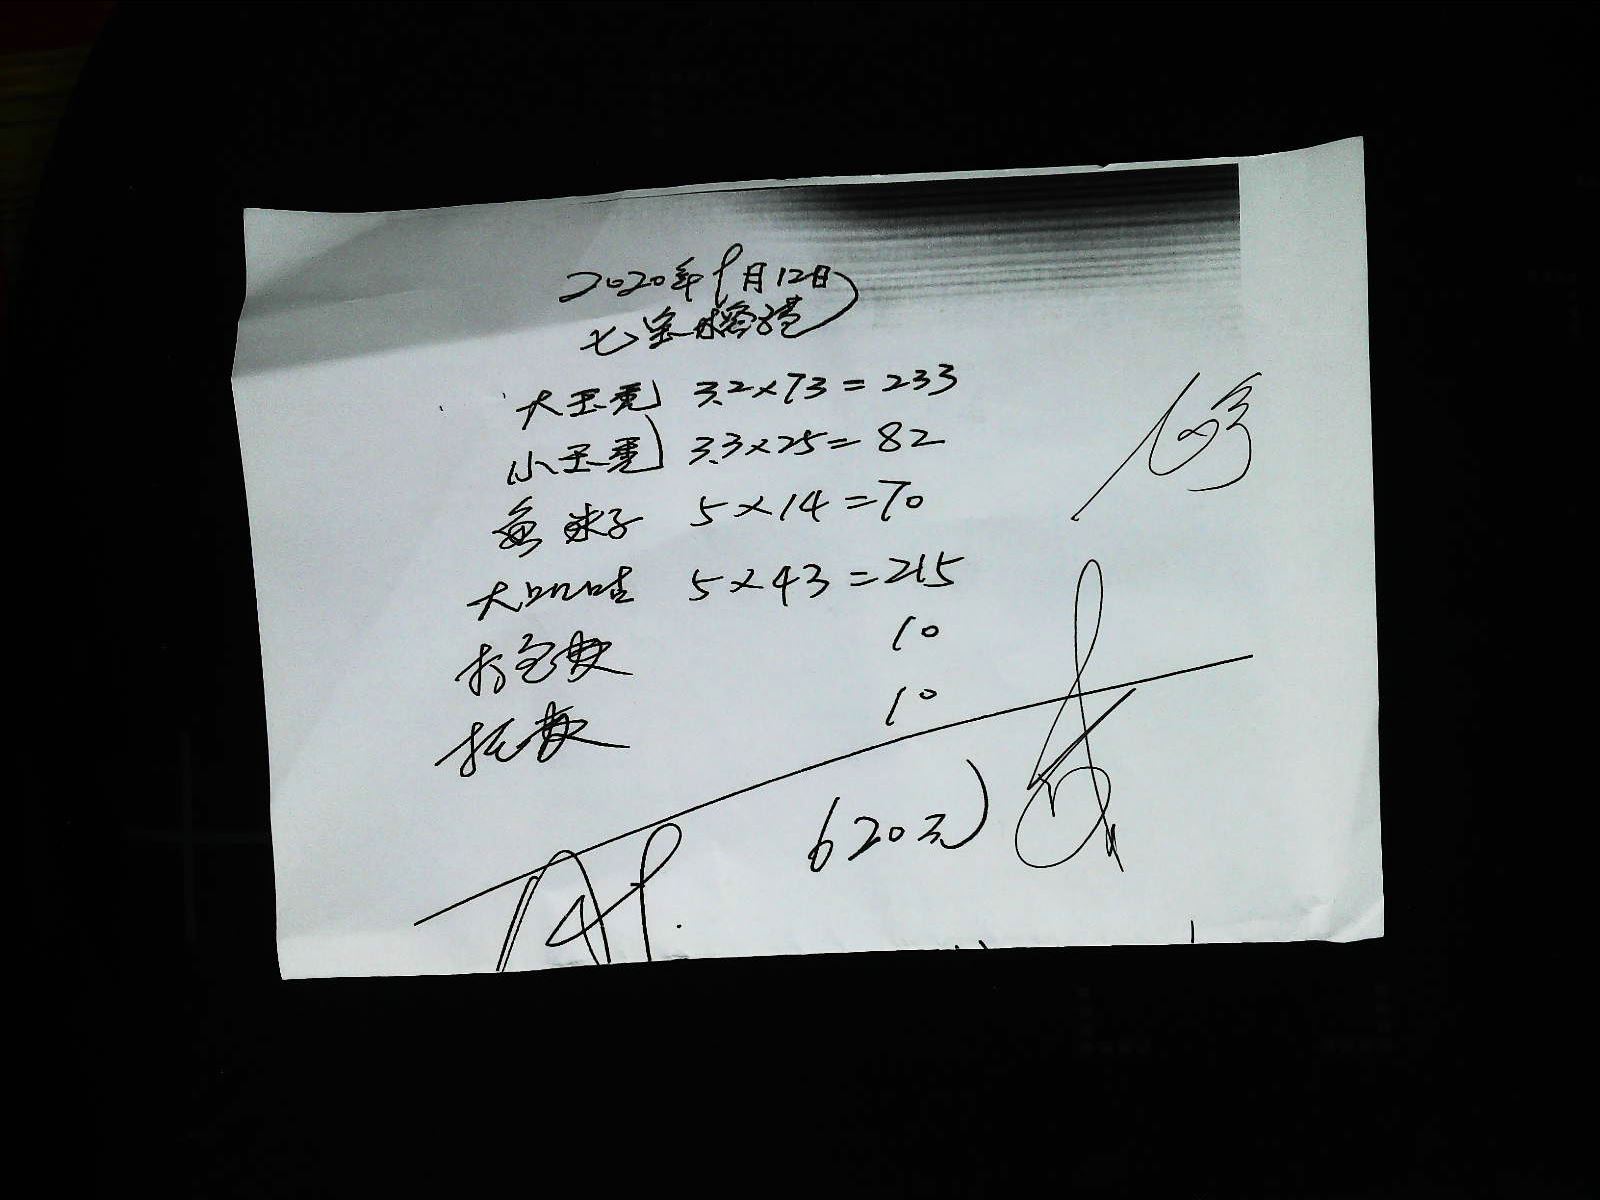 2020年9月12日
七宝
大玉壳 3.2×73=233
小玉壳 3.3×25=82
鱼米子 5×14=70
大 5×43=215
打包费 10
托费 10
620元